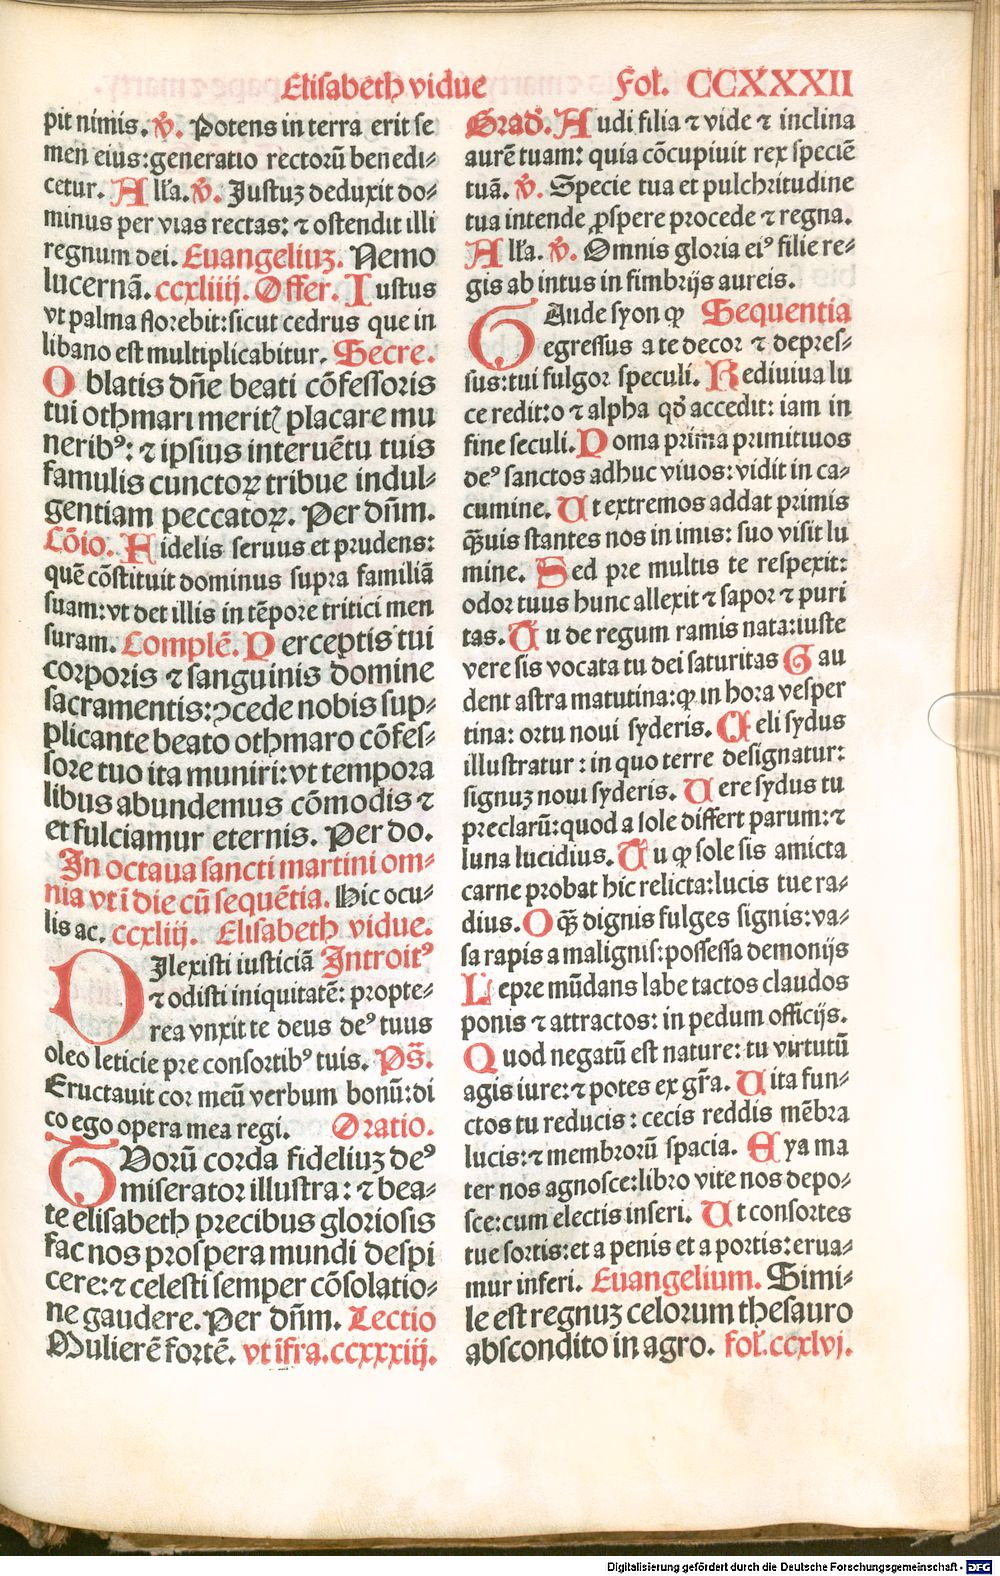 Elisabeth vidue Fol. CCXXXII
pit nimis. ꝟ. Potens in terra erit se
men eius:generatio rectorū benedi⸗
cetur. Alľa. ꝟ. Justuz deduxit do⸗
minus per vias rectas: ⁊ ostendit illi
regnum dei. Euangeliuz. Nemo
lucernā. ccxliiij. Offer. Iustus
vt palma florebit:sicut cedrus que in
libano est multiplicabitur. Secre.
Oblatis dn̄e beati cōfessoris
tui othmari meritꝭ placare mu
neribꝰ: ⁊ ipsius interuētu tuis
famulis cunctoꝝ tribue indul⸗
gentiam peccatoꝝ. Per dn̄m.
Cōio. Fidelis seruus et prudens:
quē cōstituit dominus supra familiā
suam:vt det illis in tēpore tritici men
suram. Complē. Perceptis tui
corporis ⁊ sanguinis domine
sacramentis:ↄcede nobis sup⸗
plicante beato othmaro cōfes⸗
sore tuo ita muniri:vt tempora
libus abundemus cōmodis ⁊
et fulciamur eternis. Per do.
In octaua sancti martini om⸗
nia vt ī die cū sequētia. Hic ocu⸗
lis ac. ccxliij. Elisabeth vidue.
Dilexisti iusticiā Introitꝰ
⁊ odisti iniquitatē: propte⸗
rea vnxit te deus deꝰ tuus
oleo leticie pre consortibꝰ tuis. Ps̄.
Eructauit cor meū verbum bonū:di
co ego opera mea regi. Oratio.
Tuorū corda fideliuz deꝰ
miserator illustra: ⁊ bea⸗
te elisabeth precibus gloriosis
fac nos prospera mundi despi
cere:⁊ celesti semper cōsolatio⸗
ne gaudere. Per dn̄m. Lectio
Mulierē fortē. vt īfra. ccxxxiij.
Grad̄. Audi filia ⁊ vide ⁊ inclina
aurē tuam: quia cōcupiuit rex speciē
tuā. ꝟ. Specie tua et pulchritudine
tua intende ꝓspere procede ⁊ regna.
Alľa. ꝟ. Omnis gloria eiꝰ filie re⸗
gis ab intus in fimbrijs aureis.
Gaude syon ꝙ Sequentia
egressus a te decor ⁊ depres⸗
sus:tui fulgor speculi. Rediuiua lu
ce redit:o ⁊ alpha qd̄ accedit: iam in
fine seculi. Poma prima primitiuos
deꝰ sanctos adhuc viuos: vidit in ca⸗
cumine. Ut extremos addat primis
ꝙ̄uis stantes nos in imis: suo visit lu
mine. Sed pre multis te respexit:
odor tuus hunc allexit ⁊ sapor ⁊ puri
tas. Tu de regum ramis nata:iuste
vere sis vocata tu dei saturitas Gau
dent astra matutina:ꝙ in hora vesper
tina: ortu noui syderis. Celi sydus
illustratur : in quo terre designatur:
signuz noui syderis. Uere sydus tu
preclarū:quod a sole differt parum:⁊
luna lucidius. Tu ꝙ sole sis amicta
carne probat hic relicta:lucis tue ra⸗
dius. O ꝙ̄ dignis fulges signis:va⸗
sa rapis a malignis:possessa demonijs
Lepre mūdans labe tactos claudos
ponis ⁊ attractos: in pedum officijs.
Quod negatū est nature: tu virtutū
agis iure:⁊ potes ex gr̄a. Uita fun⸗
ctos tu reducis : cecis reddis mēbra
lucis:⁊ membrorū spacia. Eya ma
ter nos agnosce:libro vite nos depo⸗
sce:cum electis inseri. Ut consortes
tue sortis:et a penis et a portis:erua⸗
mur inferi. Euangelium. Simi⸗
le est regnuz celorum thesauro
abscondito in agro. fol. ccxlvj.
Digitalisierung gefördert durch die Deutsche Forschungsgemeinschaft - DFG